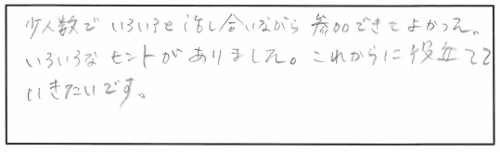 少人数でいろいろと話し合いながら参加できてよかった。
いろいろなヒントがありました。これからに役立てて
いきたいです。